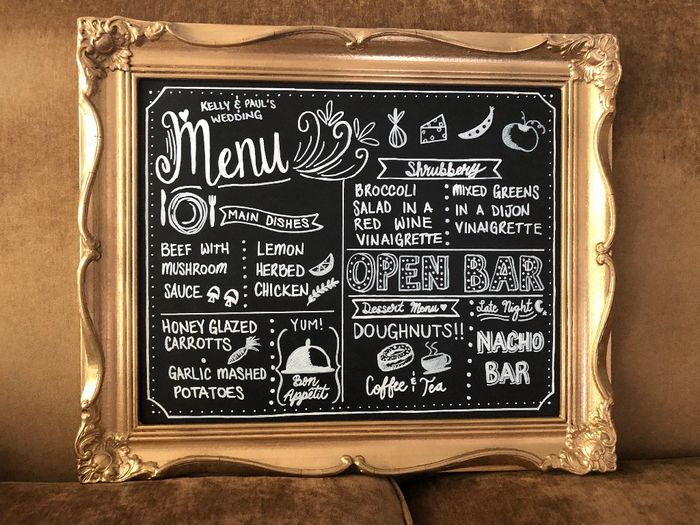 KELLY & PAUL'S
WEDDING
Menu
MAIN DISHES
BEEF WITH
MUSHROOM
SAUCE
LEMON
HERBED
CHICKEN
HONEY GLAZED
CARROTTS
GARLIC MASHED
POTATOES
YUM!
Bon
Appétit
Shrubbery
BROCCOLI
SALAD IN A
RED WINE
VINAIGRETTE
MIXED GREENS
IN A DIJON
VINAIGRETTE
OPEN BAR
Dessert Menu
DOUGHNUTS!!
Coffee & Tea
Late Night
NACHO
BAR